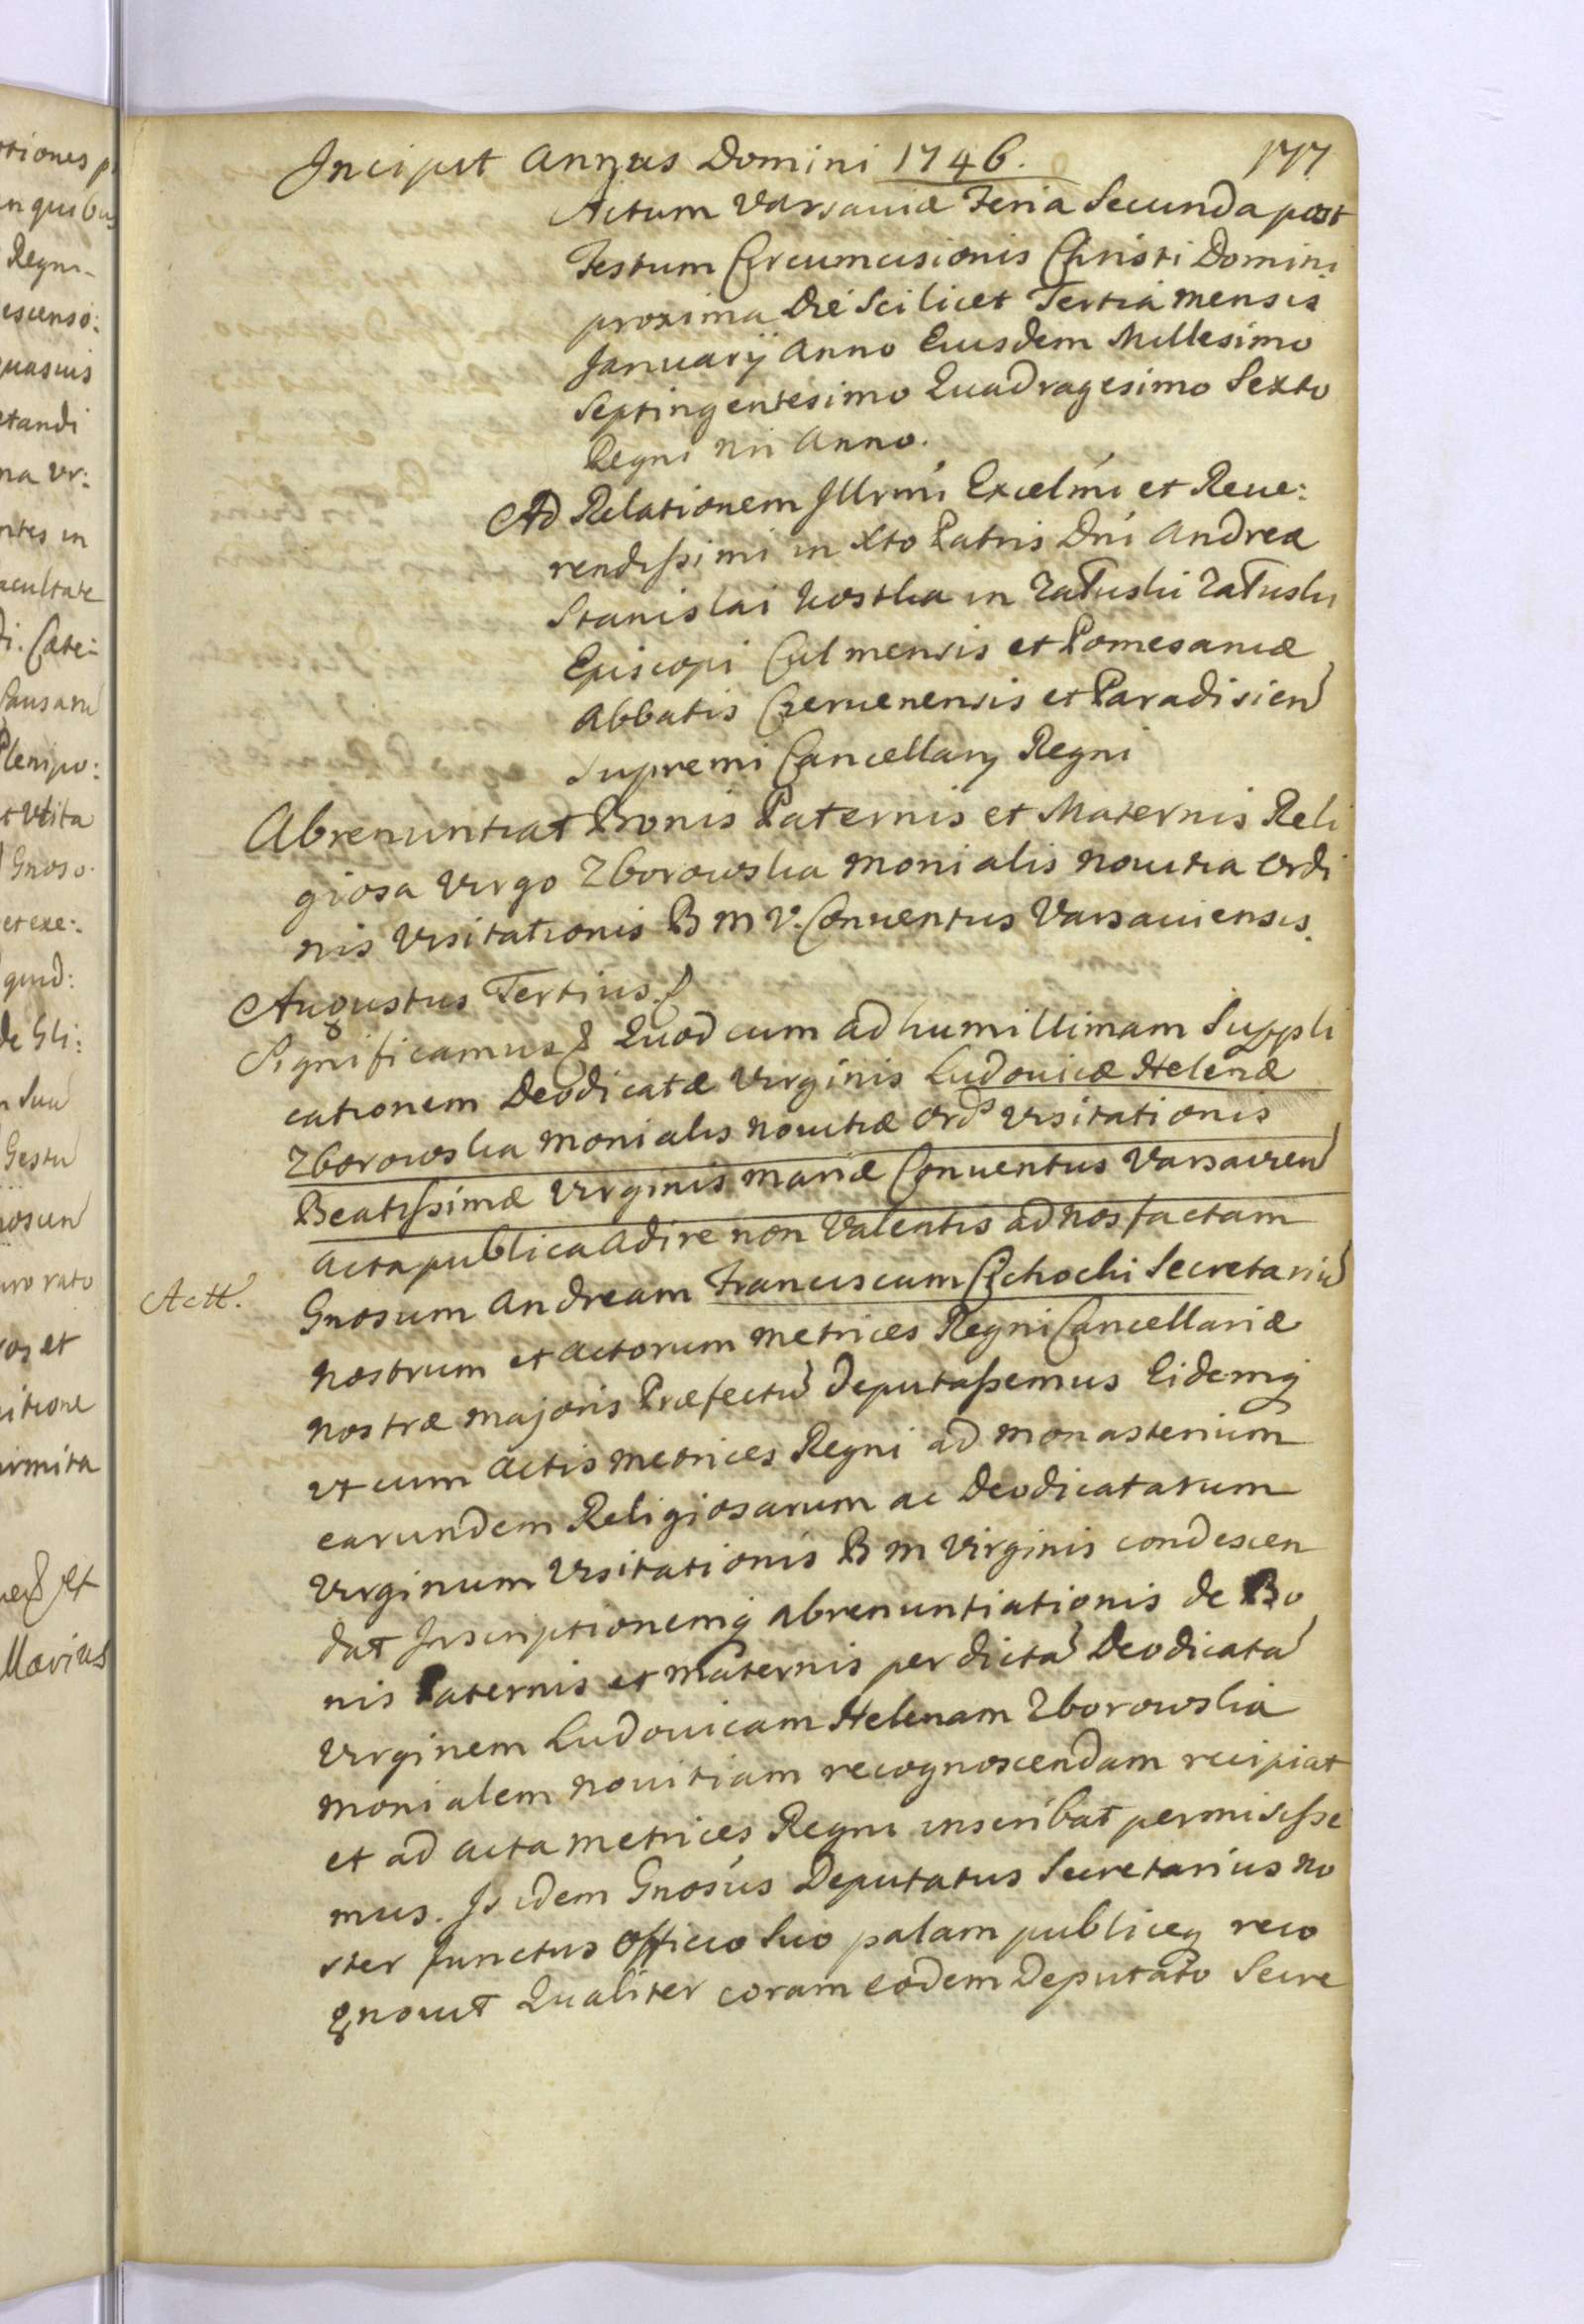 Incipit Annus Domini 1746. 177
Actum Varsaviæ Feria Secunda post
Festum Circumcisionis Christi Domini
proxima Die Scilicet Tertia mensis
Januarij Anno Eiusdem Millesimo
Septingentesimo Quadragesimo Sexto
Regni nri Anno.
Ad Relationem Illrmi Excelmi et Reue:
rendissimi in Xto Patris Dni Andreæ
Stanislai Kostka in Załuskie Załuski
Episcopi Culmensis et Pomesaniæ
Abbatis Czervenensis et Paradisien
Supremi Cancellarij Regni
Abrenuntiat Bonis Paternis et Maternis Reli
giosa Virgo Zborowska Monialis Novitia Ordi
nis Visitationis B M V. Conventus Varsaviensis.
Augustus Tertius &
Significamus & Quod cum ad humillimam Suppli
cationem Deodicatæ Virginis Ludovicæ Helenæ
Zborowska Monialis Novitiæ Ordis Visitationis
Beatissimæ Virginis Mariæ Conventus Varsavien
Acta publica adire non Valentis ad Nos factam
Gnosum Andream Franciscum Cichocki Secretariu
Actt.
Nostrum et Actorum Metrices Regni Cancellariæ
Nostræ Majoris Præfectu deputassemus Eidemq
vt cum Actis Metrices Regni ad Monasterium
earundem Religiosarum ac Deodicatarum
Virginum Visitationis B M Virginis condescen
dat Inscriptionemq abrenuntiationis de Bo
nis Paternis et Maternis per dictá Deodicatá
Virginem Ludovicam Helenam Zborowska
Monialem Novitiam recognoscendam recipiat
et ad Acta Metrices Regni inscribat permisisse
mus. Is idem Gnosus Deputatus Secretarius No
ster functus Officio Suo palam publiceq reco
gnovit Qualiter coram eodem Deputato Secre